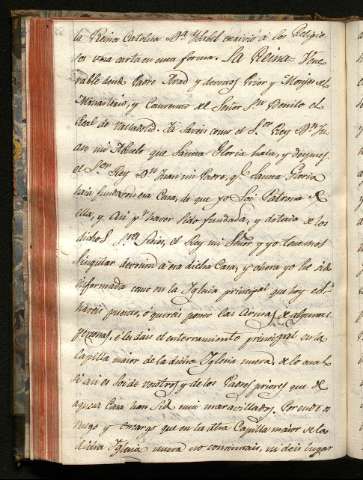 la Reina Catolica Dª Isabel escrivió a los Religio-
sos una carta en esta forma. La Reina. Vene-
rable devoto Padre Abad y demas Prior y Monjes del
Monasterio, y Convento del Señor Sn Benito el
Real de Valladolid. Ya saveis como el Sor Rey Dn Ju-
an mi Abuelo que Santa Gloria haia, y despues
el Sor Rey Dn Juan mi Padre, q Santa Gloria
haia fundaron esa Casa, de que yo soy Patrona
y dotada de los
dichos el Rey mi Señor y yo tenemos
singular devocion a esa dicha Casa, y ahora yo he sido
informada como en la Iglesia principal que hoy edi-
ficais quereis poner las Armas de algunas
personas, o la dais el enterramiento principal en la
Capilla maior de la dicha Iglesia nueva, de lo qual
vosotros y de los Padres priores que de
aquesa Casa han sido mui maravillados. Por ende os
ruego y encargo que en la dha Capilla maior de la
dicha Iglesia nueva no consintais, ni deis lugar